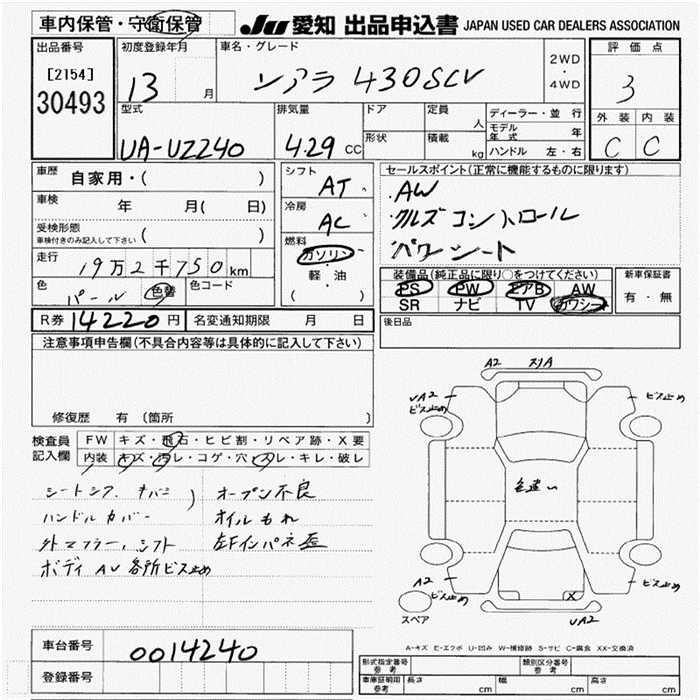 車内保管・守衛保管
JU愛知 出品申込書 JAPAN USED CAR DEALERS ASSOCIATION
出品番号
[2154]
30493
初度登録年月
13 月
車名・グレード
ソアラ 430SCV
2WD
・
4WD
評価点
3
外装 内装
C C
型式
UA-UZZ40
排気量
4.29 CC
ドア
定員
人
形状
積載
kg
ディーラー・並行
モデル年式 年
ハンドル 左・右
車歴
自家用・( )
車検
年 月( 日)
受検形態
車検付きのみ記入して下さい ( )
走行
19万2千750km
色
パール 色替
色コード
シフト
AT
冷房
AC
燃料
ガソリン
軽・油
( )
セールスポイント(正常に機能するものに限ります)
・AW
・クルズコントロール
・パワーシート
装備品(純正品に限り○をつけてください)
PS PW エアB AW
SR ナビ TV カワシート
新車保証書
有・無
R券 14220円
名変通知期限 月 日
後日品
注意事項申告欄(不具合内容等は具体的に記入して下さい)
修復歴 有(箇所
検査員
記入欄
FW キズ・飛石・ヒビ割・リペア跡・X要
内装 キズ・汚レ・コゲ・穴・スレ・キレ・破レ
オープン不良
ハンドルカバー
オイルもれ
外マフラー、シフト
左Fインパネ歪
各所ビス止め
A2
スリA
UA2
ビス止め
ビス止め
色違い
A2
ビス止め
X
ビス止め
UA2
スペア
車台番号
0014240
登録番号
A-キズ E-エクボ U-凹み W-補修跡 S-サビ C-腐食 XX-交換済
形式指定番号
参考
類別区分番号
参考
車庫証明用
参考
長さ cm 幅 cm 高さ cm